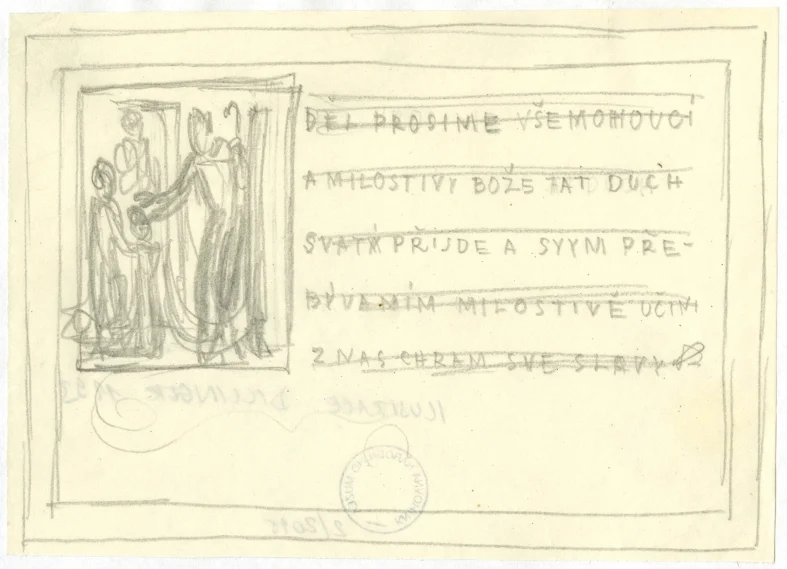 DĚJ PROSIME VŠEMOHOUCÍ
A MILOSTIVÝ BOŽE ŤAŤ DUCH
SVATÝ PŘIJDE A SVYM PŘE-
BÝVANÍM MILOSTIVĚ UČINI
Z NAS CHRAM SVE SLAVY
ILUSTRACE DILLINGER
2/2015